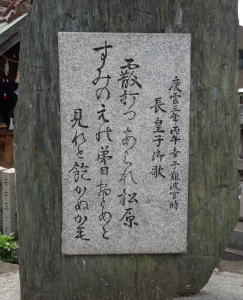 慶雲三年丙午幸于難波宮時
長皇子御歌
霰打つあられ松原
すみの江の弟日おとめと
見れと飽かぬかも